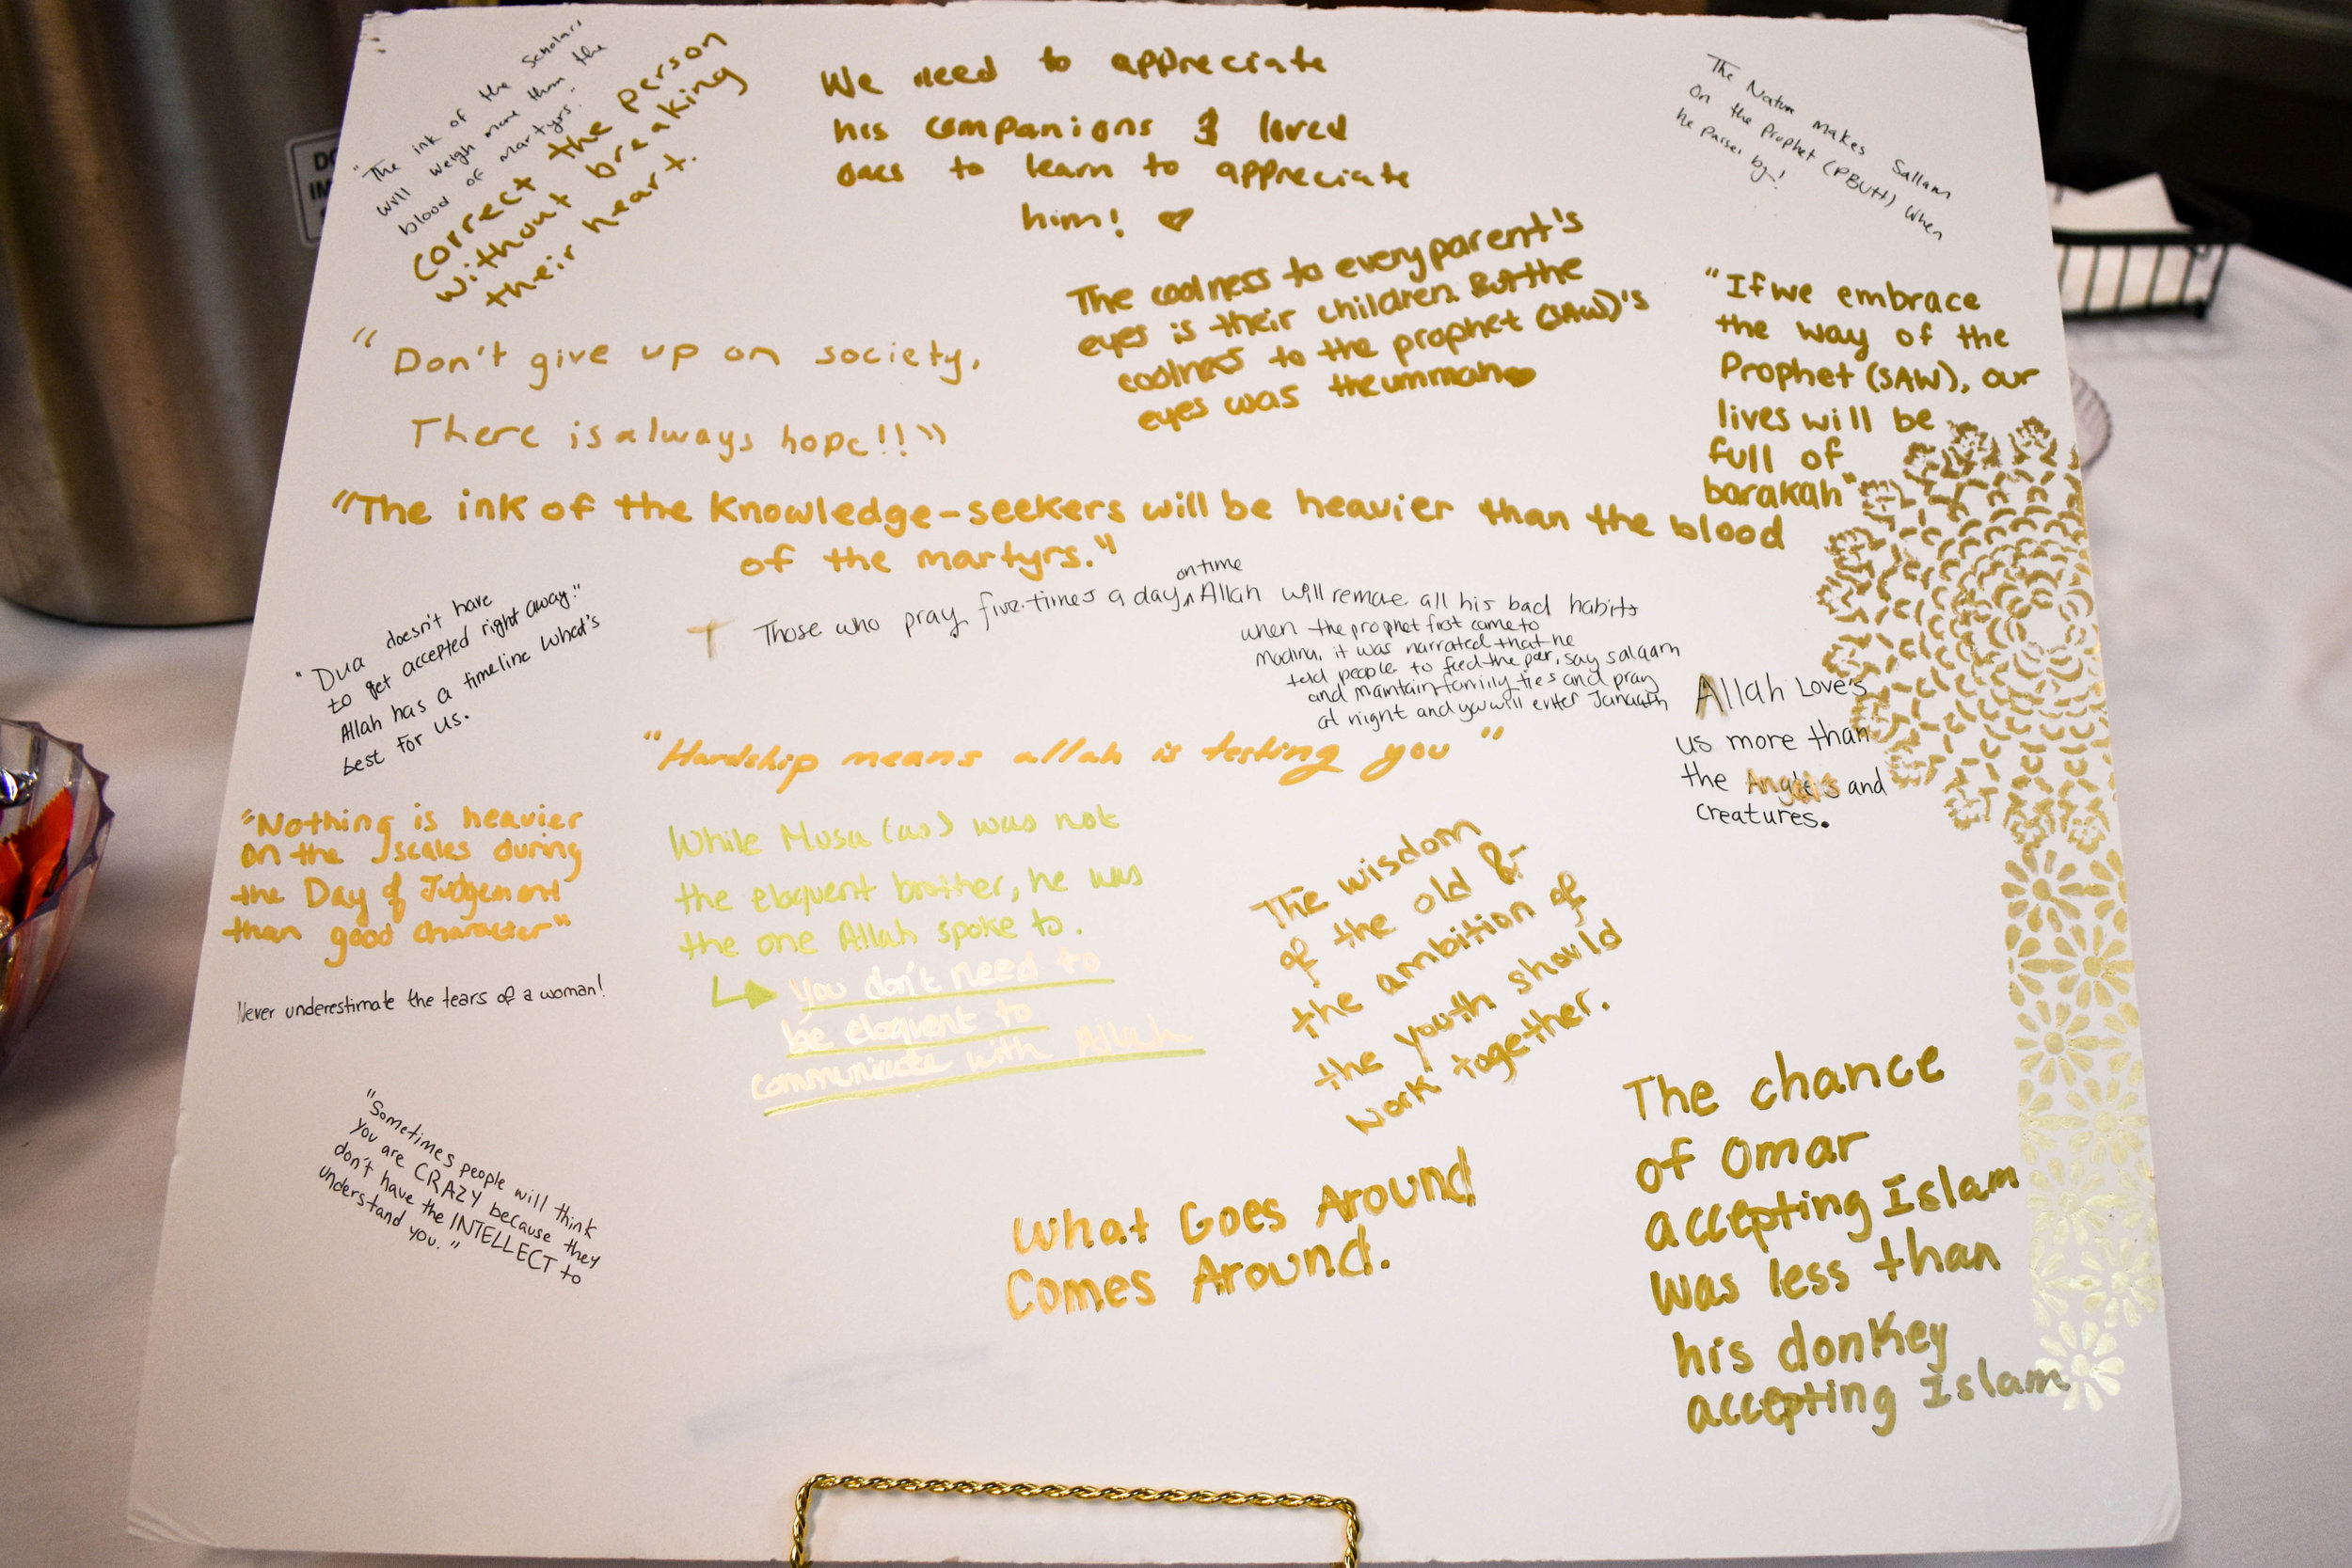 "The ink of the Scholars
will weigh more than the
blood of martyrs."
Correct the person
without breaking
their heart.
We need to appreciate
his companions & loved
ones to learn to appreciate
him!
The Nature makes Sallam
On the Prophet (PBUH) when
he passes by!
The coolness to every parent's
eyes is their children. But the
coolness to the prophet (SAW)'s
eyes was the ummah
"If we embrace
the way of the
Prophet (SAW), our
lives will be
full of
barakah"
"Don't give up on society,
There is always hope!!"
"The ink of the Knowledge-seekers will be heavier than the blood
of the martyrs."
"Dua doesn't have
to get accepted right away."
Allah has a timeline what's
best for us.
on time
Those who pray five times a day, Allah will remove all his bad habits
when the prophet first came to
Madina, it was narrated that he
told people to feed the poor, say salaam
and maintain family ties and pray
at night and you will enter Janaath
Allah Love's
us more than
the Angles and
creatures.
"Hardship means allah is testing you"
"Nothing is heavier
on the scales during
the Day of Judgement
than good character"
Never underestimate the tears of a woman!
While Musa (as) was not
the eloquent brother, he was
the one Allah spoke to.
You don't need to
be eloquent to
communicate with Allah
The wisdom
of the old &
the ambition of
the youth should
work together.
"Sometimes people will think
you are CRAZY because they
don't have the INTELLECT to
understand you."
What Goes Around
Comes Around.
The chance
of Omar
accepting Islam
was less than
his donkey
accepting Islam